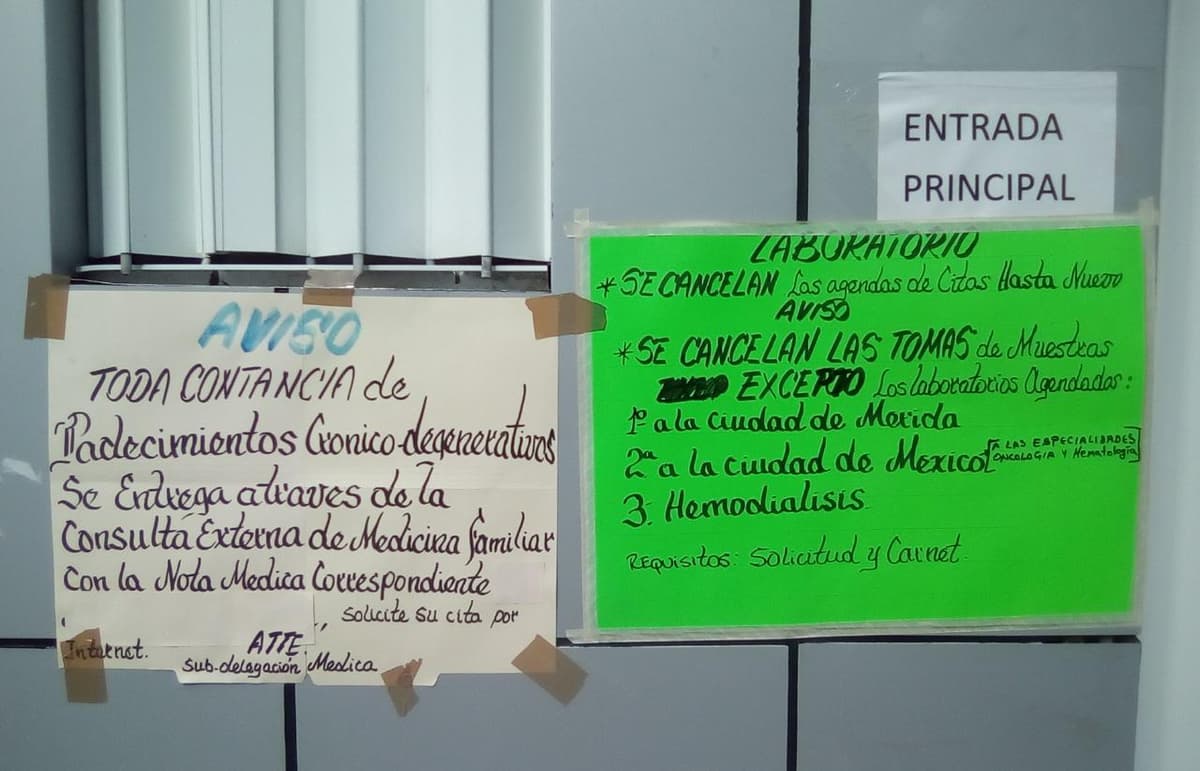 AVISO
TODA CONTANCIA de
Padecimientos Cronico-degenerativos
Se Entrega atraves de la
Consulta Externa de Medicina familiar
Con la Nota Medica Correspondiente
., solicite su cita por
Internet.
ATTE.
Sub-delegación Medica
ENTRADA
PRINCIPAL
LABORATORIO
* SE CANCELAN Las agendas de Citas Hasta Nuevo
AVISO
* SE CANCELAN LAS TOMAS de Muestras
EXCEPTO Los laboratorios Agendadas:
1º a la Ciudad de Merida
2ª a la Ciudad de Mexico [A LAS ESPECIALIDADES
ONCOLOGIA Y Hematologia]
3. Hemodialisis
REQUISITOS: Solicitud y Carnet.